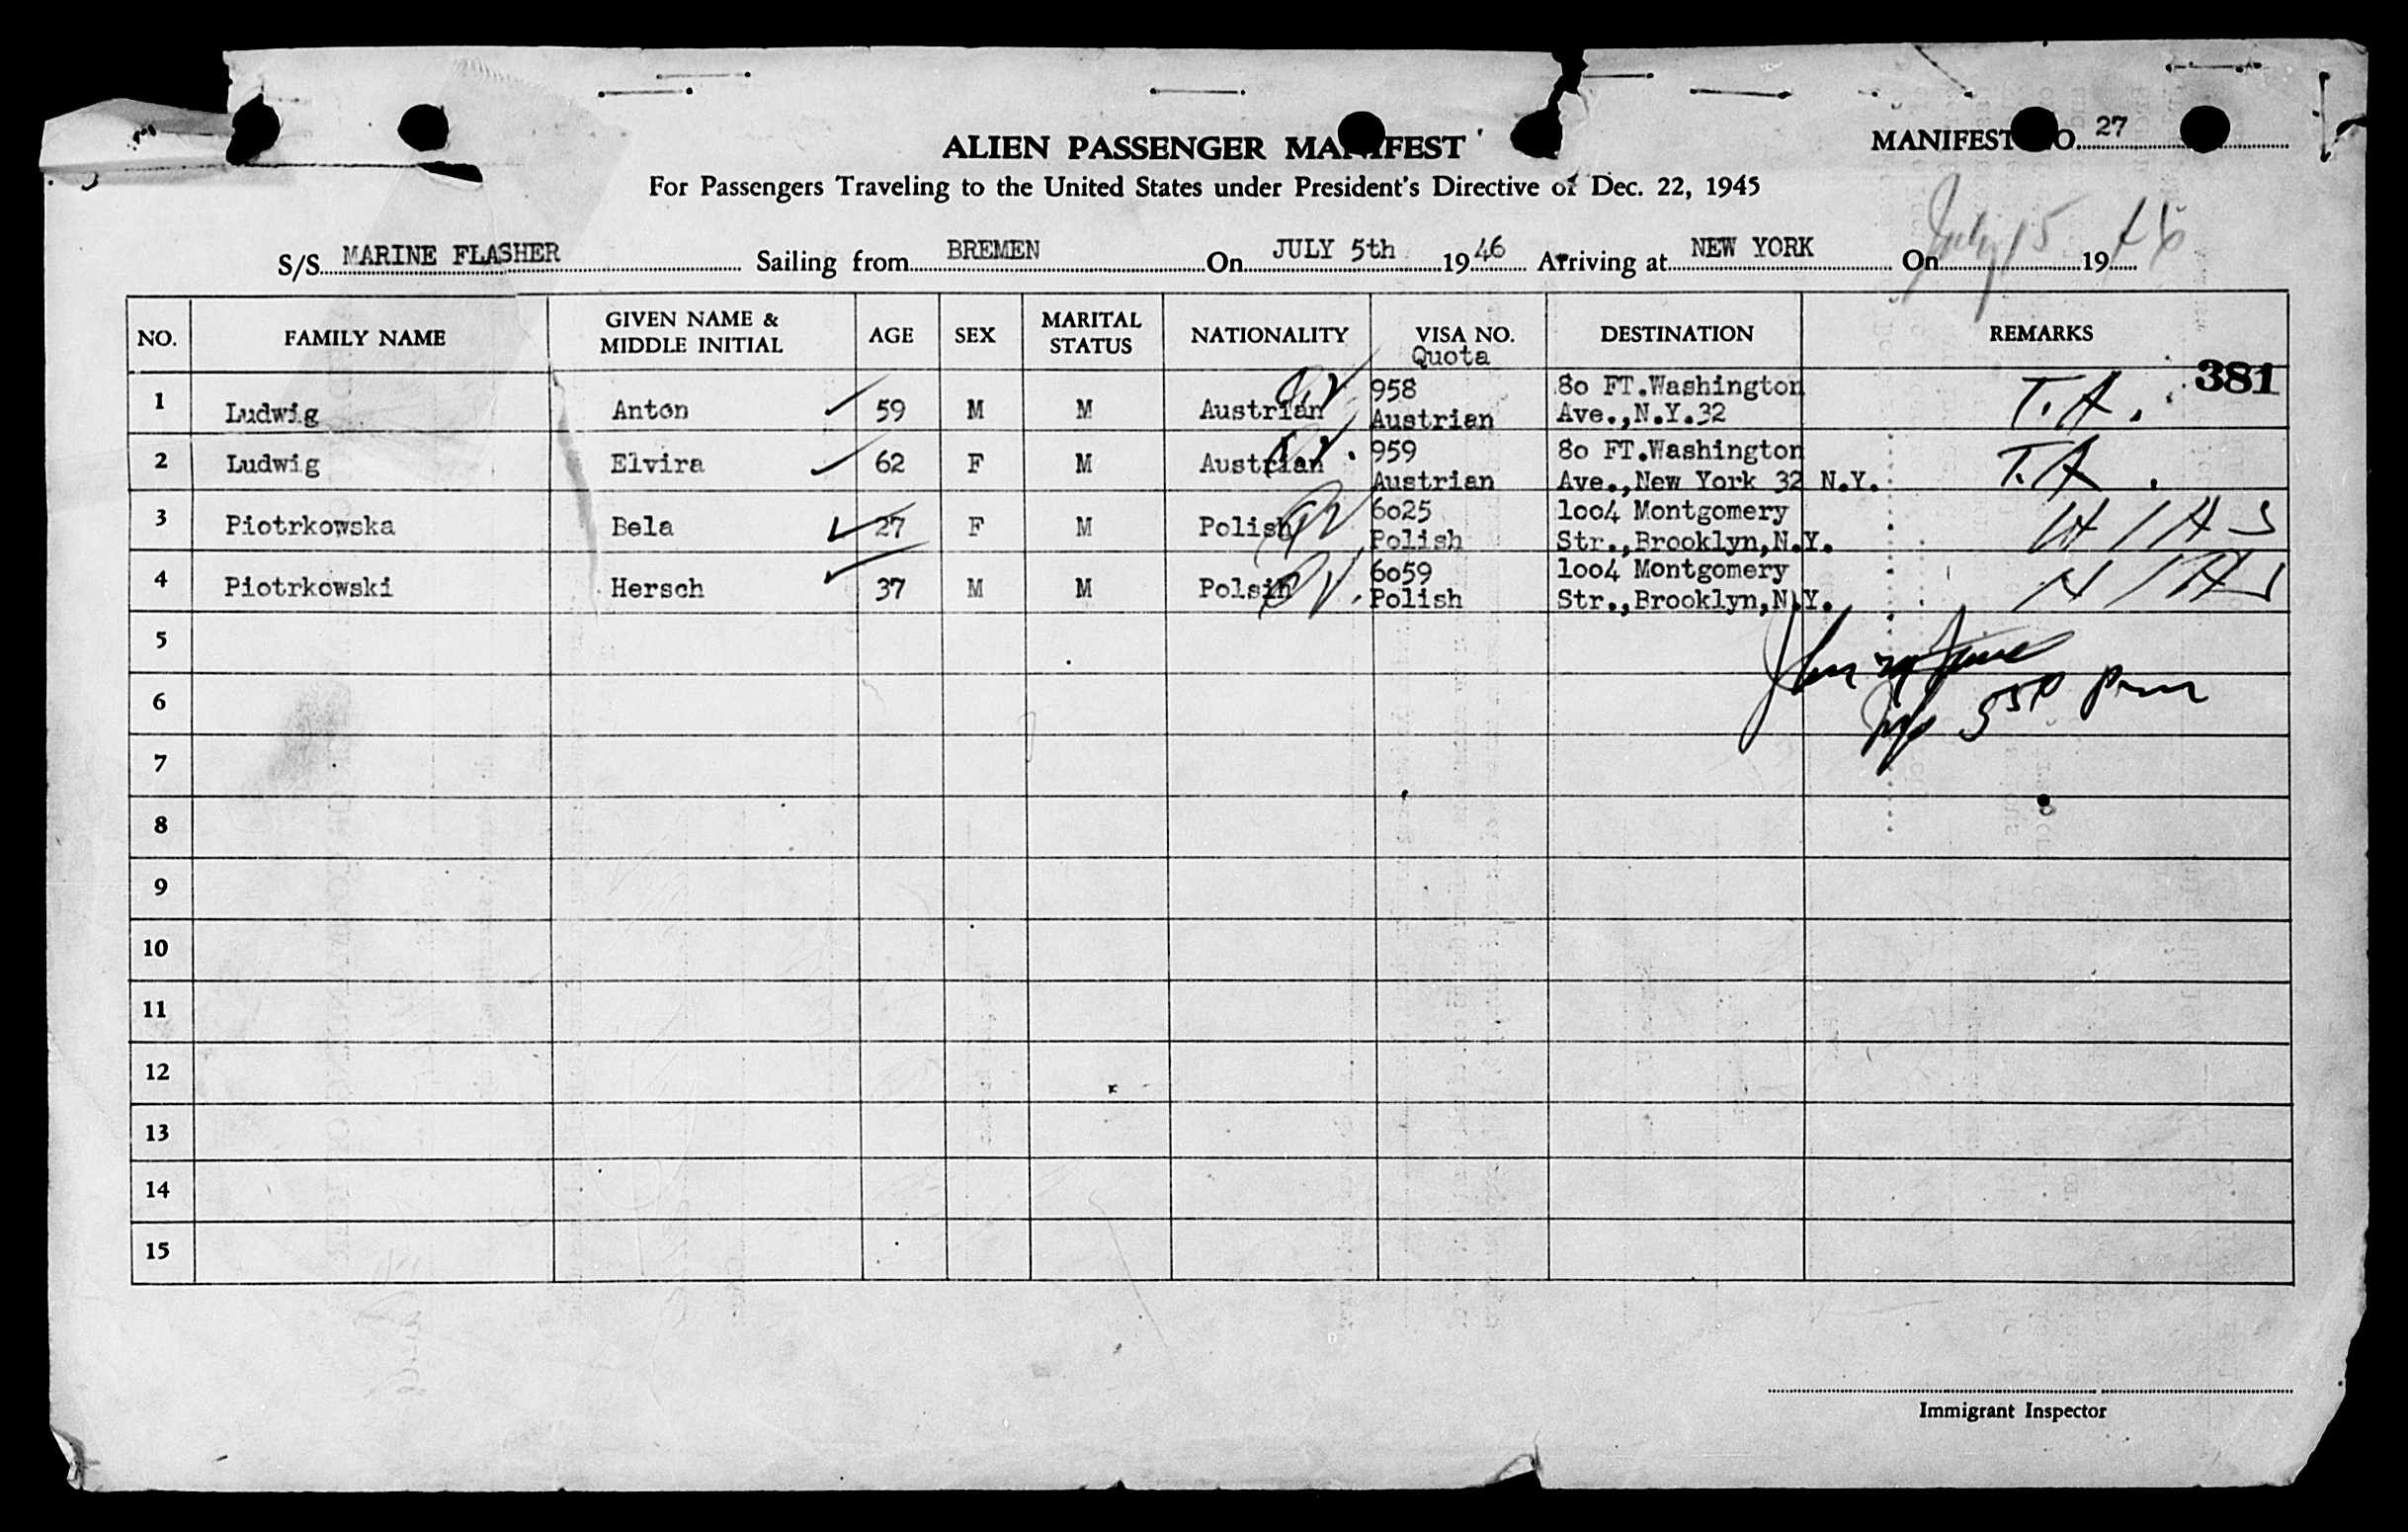 ALIEN PASSENGER MANIFEST
MANIFEST NO. 27
For Passengers Traveling to the United States under President's Directive of Dec. 22, 1945
S/S MARINE FLASHER Sailing from BREMEN On JULY 5th 1946 Arriving at NEW YORK On July 15 19 46
NO. FAMILY NAME GIVEN NAME & MIDDLE INITIAL AGE SEX MARITAL STATUS NATIONALITY VISA NO. Quota DESTINATION REMARKS
381
1 Ludwig Anton 59 M M Austrian 958 Austrian 80 FT.Washington Ave.,N.Y.32 T.A.
2 Ludwig Elvira 62 F M Austrian 959 Austrian 80 FT.Washington Ave.,New York 32 N.Y. T.A.
3 Piotrkowska Bela 27 F M Polish 6025 Polish 1004 Montgomery Str.,Brooklyn,N.Y. HIAS
4 Piotrkowski Hersch 37 M M Polsih 6059 Polish 1004 Montgomery Str.,Brooklyn,N.Y. HIAS
5
6
7
8
9
10
11
12
13
14
15
Immigrant Inspector